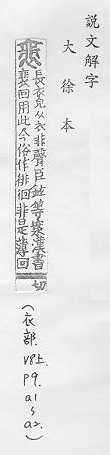 説文解字
大徐本
裵
長衣皃从衣非聲臣鉉等案漢書
裵回用此今俗作徘徊非是薄回
切
(衣部. V8上. P9. a1~a2.)